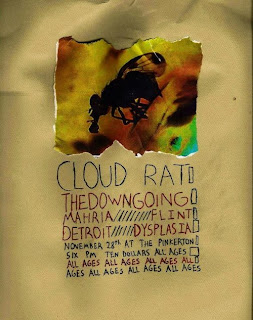 CLOUD RAT
THEDOWNGOING
MAHRIA//////////FLINT
DETROIT//////DYSPLASIA
NOVEMBER 28TH AT THE PINKERTON
SIX PM TEN DOLLARS ALL AGES
ALL AGES ALL AGES ALL AGES ALL
AGES ALL AGES ALL AGES ALL AGES